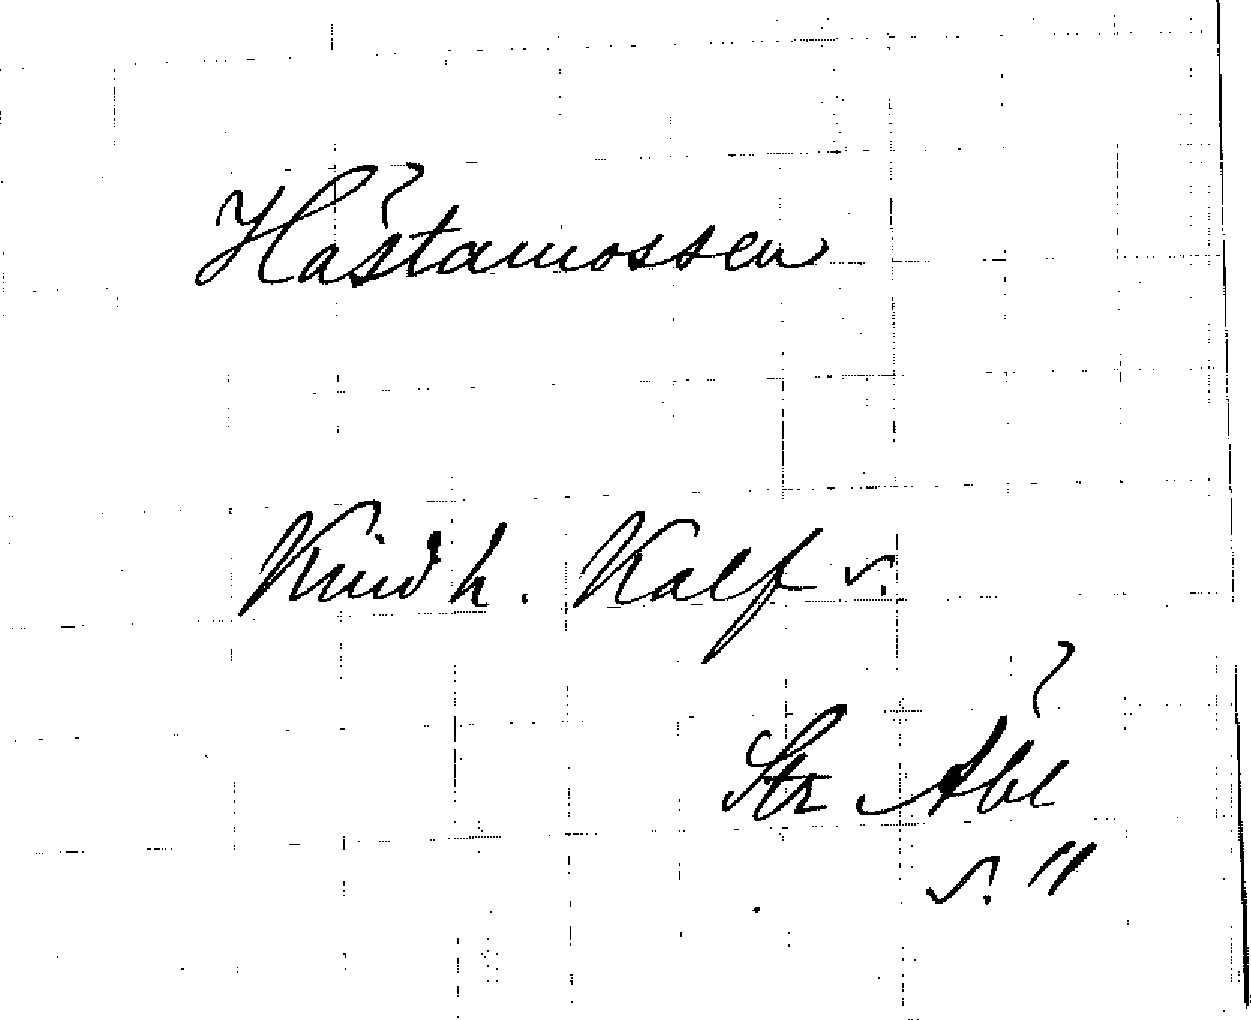 Hästamossen
Kind h. Kalf s.
Str Åbl
s. "